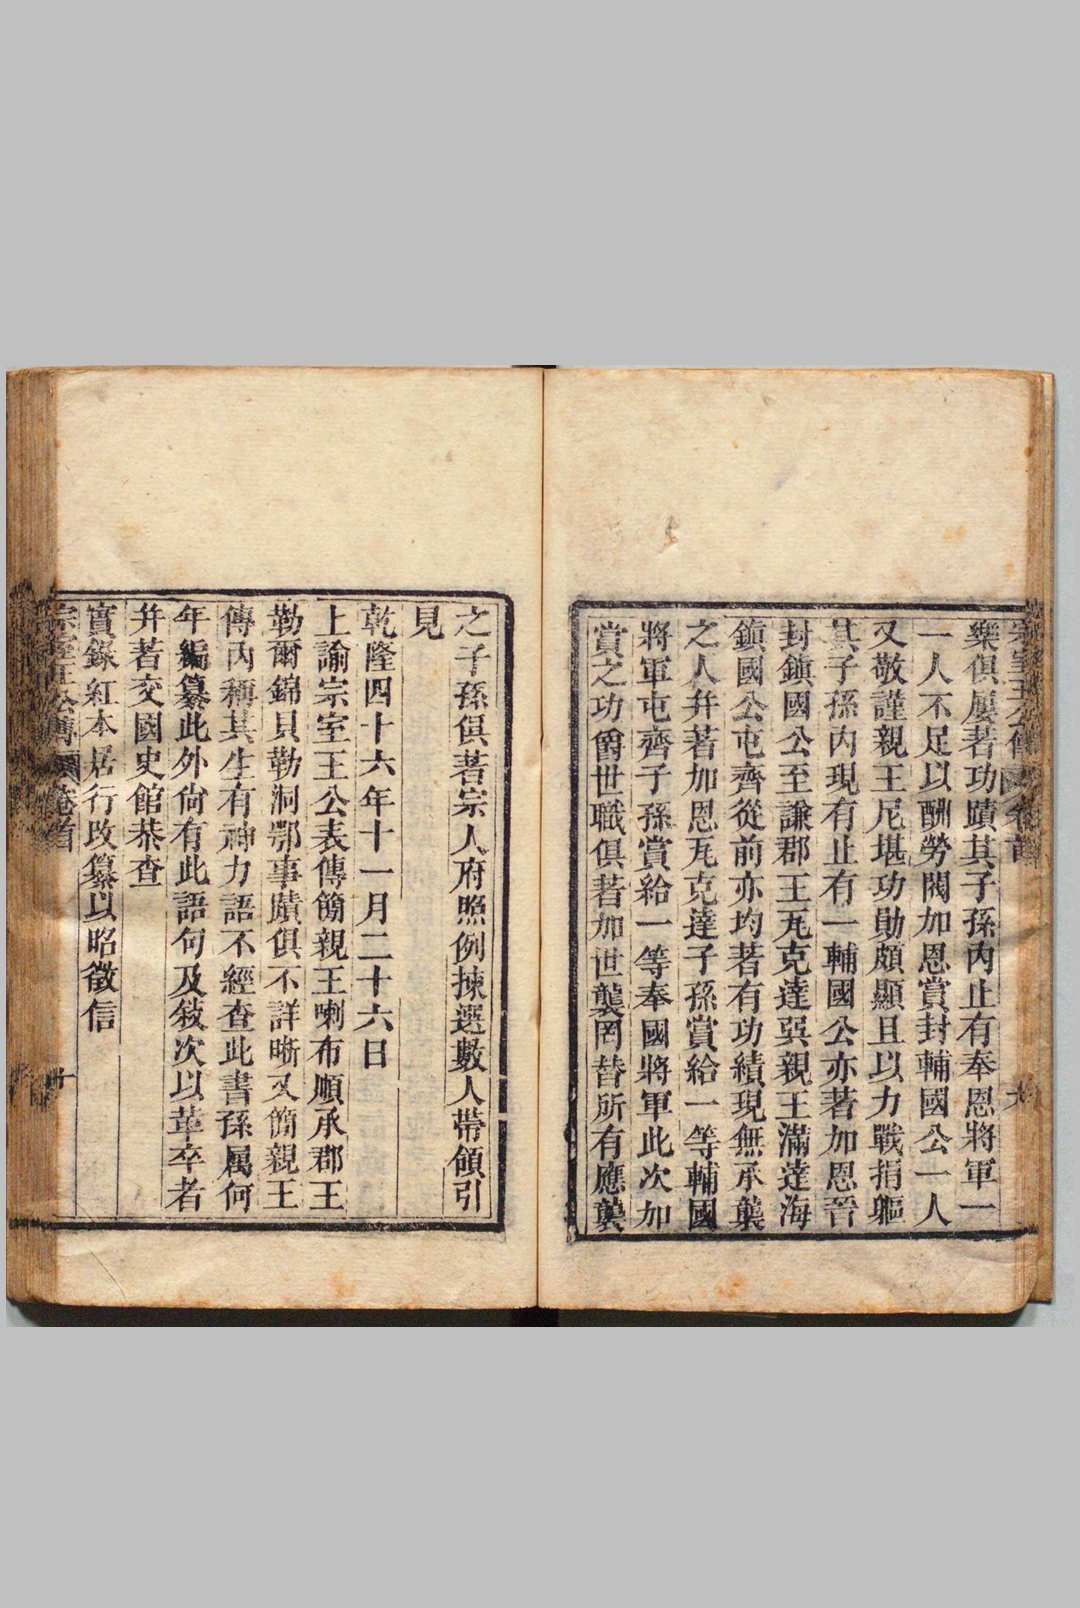 樂俱屢著功蹟其子孫內止有奉恩將軍一
一人不足以酬勞閥加恩賞封輔國公一人
又敬謹親王尼堪功勛頗顯且以力戰捐軀
其子孫內現有止有一輔國公亦著加恩晉
封鎮國公至謙郡王瓦克達巽親王滿達海
鎮國公屯齊從前亦均著有功績現無承襲
之人幷著加恩瓦克達子孫賞給一等輔國
將軍屯齊子孫賞給一等奉國將軍此次加
賞之功爵世職俱著加世襲罔替所有應襲
之子孫俱著宗人府照例揀選數人帶領引
見
乾隆四十六年十一月二十六日
上諭宗室王公表傳簡親王喇布順承郡王
勒爾錦貝勒洞鄂事蹟俱不詳晰又簡親王
傳內稱其生有神力語不經查此書孫屬何
年編纂此外尙有此語句及敍次以革卒者
幷著交國史館恭查
實錄紅本居行改纂以昭徵信
宗室王公傳 卷首 十